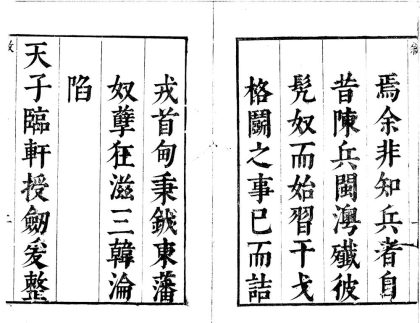 焉余非知兵者自
昔陳兵閩澳殲彼
髡奴而始習干戈
格鬭之事已而詰
戎首甸秉鉞東藩
奴孽狂滋三韓淪
陷
天子臨軒授劒爰整